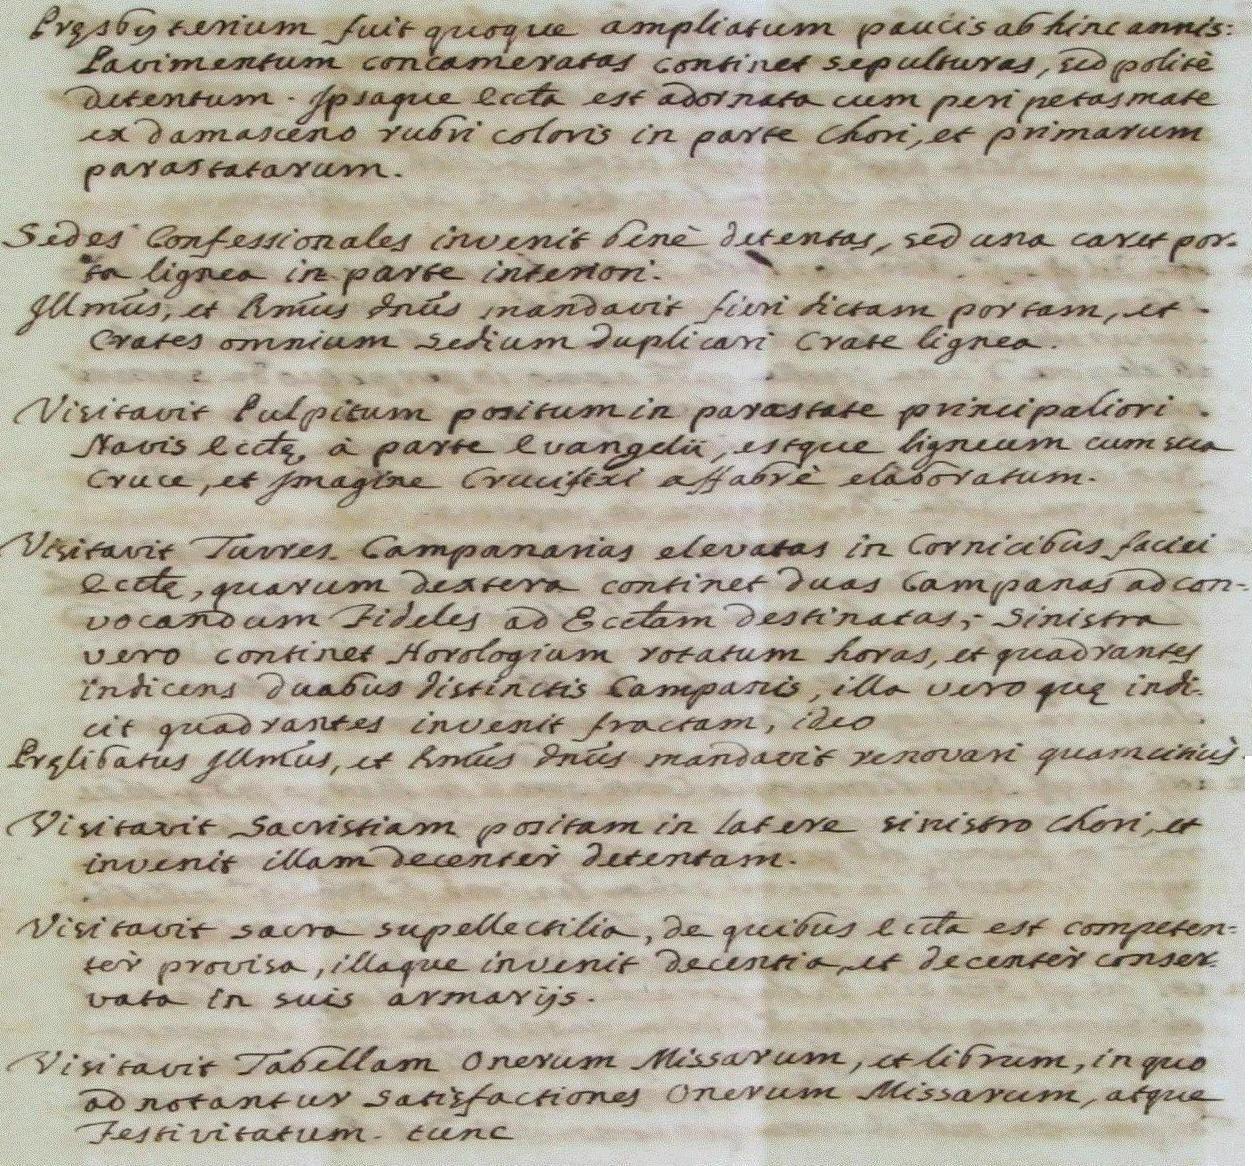 Pręsbyterium fuit quoque ampliatum paucis ab hinc annis:
Pavimentum concameratas continet sepulturas, sed politè
detentum. Ipsaque Eccta est adornata cum peripetasmate
ex damasceno rubri coloris in parte Chori, et primarum
parastatarum.
Sedes Confessionales invenit benè detentas, sed una caret por-
ta lignea in parte interiori.
Illmũs, et Rmũs dnũs mandavit fieri dictam portam, et
Crates omnium Sedium duplicari Crate lignea.
Visitavit Pulpitum positum in parastate principaliori
Navis Ecctę, à parte Evangelii, estque ligneum cum sua
Cruce, et Imagine Crucifixi affabrè elaboratum.
Visitavit Turres Campanarias elevatas in Cornicibus faciei
Ecctę, quarum dextera continet duas Campanas ad con-
vocandum Fideles ad Ecctam destinatas; Sinistra
vero continet Horologium rotatum horas, et quadrantes
indicens duabus distinctis Campanis, illa vero quę indi-
cit quadrantes invenit fractam, ideo
Pręlibatus Illmũs, et Rmũs dnũs mandavit renovari quamcitiùs.
Visitavit Sacristiam positam in latere sinistro Chori, et
invenit illam decentèr detentam.
Visitavit sacra supellectilia, de quibus Eccta est competen-
tèr provisa, illaque invenit decentia, et decentèr conser-
vata in suis armarijs.
Visitavit Tabellam Onerum Missarum, et librum, in quo
adnotantur Satisfactiones Onerum Missarum, atque
Festivitatum. tunc